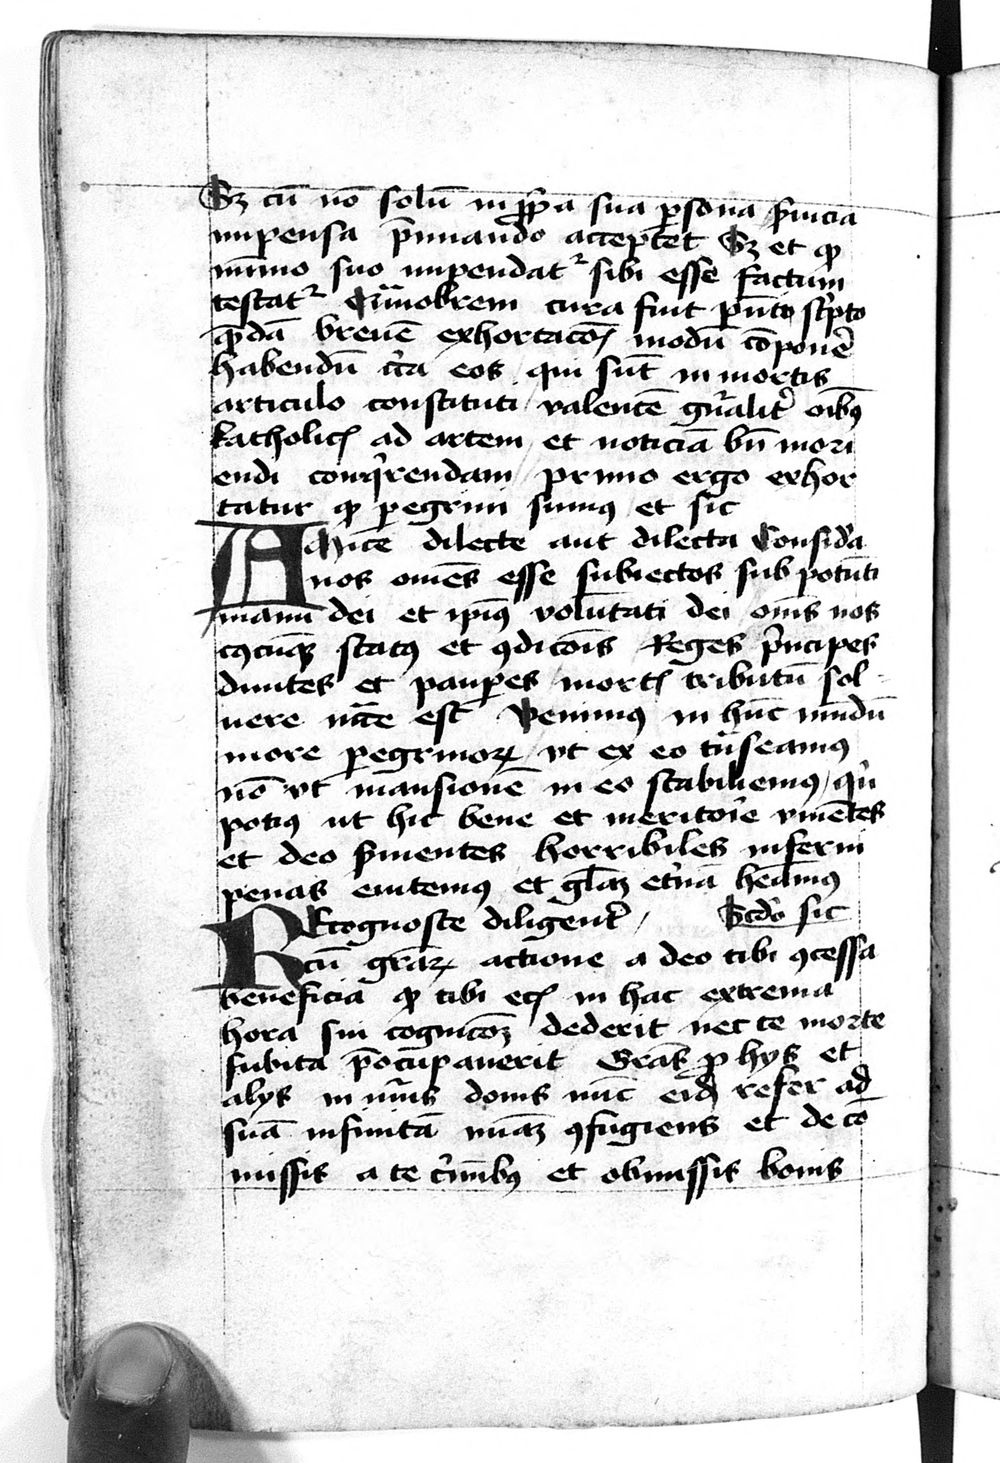 Sꝫ cū nō solū in ꝓp̄a sua ꝑsona s̄uicia
impensa p̄miando acceptet Sꝫ et qͥ
mīmo suo impendatᷣ sibi esse factum
testatᷣ Quāobrem cura fuit p̄nti sc̄pto
q̄ndā breuē exhortacōꝭ modū cōponē
habendū cͥca eos qui sūt in mortis
articulo constituti / valentē gn̄alit̄ oībꝰ
katholicꝭ ad artem et noticiā bn̄ mori
endi conqͥrendam / primo ergo exhor
tatur ꝙ peregrini sumꝰ et sic
AMice dilecte aut dilecta Consid̄a
nos om̄es esse subiectos sub potēti
manu dei et ip̄iꝰ voluntati dei om̄s nos
cꝰcūqꝫ statꝰ et ꝯdicōis Reges p̄ncipes
diuites et pauꝑes mortꝭ tributū sol
uere nc̄ce est Venimꝰ in hūc mūdū
more ꝑegrinoꝝ / vt ex eo tn̄seamꝰ
nō vt mansionē in eo stabiliemꝰ / qͥn
potiꝰ ut hic bene et meritor̄e viuētes
et deo s̄uientes horribiles inferni
penas euitemꝰ et gl̄iaꝫ et̄nā hēamꝰ
REcognosce diligent̄ / Scd̄o sic
cū gr̄aꝝ actione a deo tibi ꝯcessa
beneficia ꝙ tibi ecꝭ in hac extrema
hora sui cognicōeꝫ dederit nec te morte
subita p̄occupauerit Gr̄as ꝓ hys et
alys in nūīs donis nūc eidē refer ad
suā infinitā mīaꝫ ꝯfugiens et de cō
missis a te cͥmībꝰ et obmissis bonis